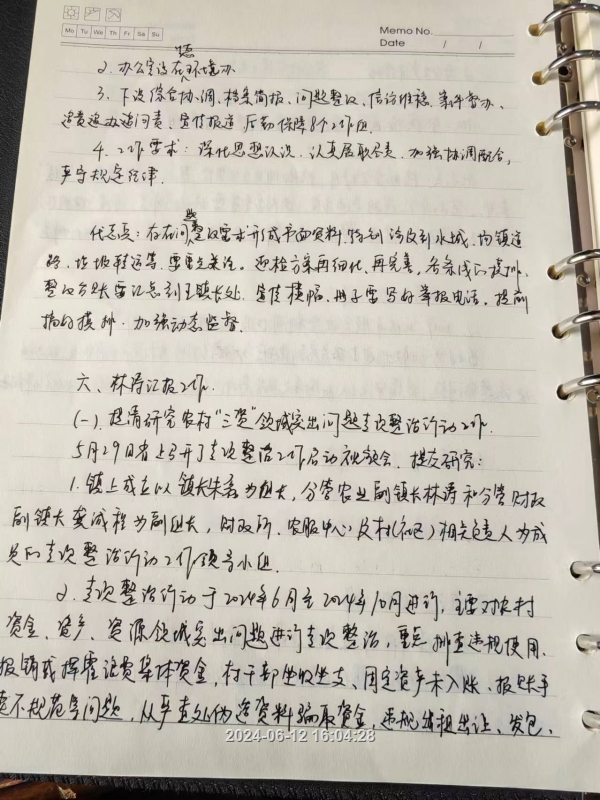 Mo Tu We Th Fr Sa Su
Memo No.
Date / /
2、办公室设在镇环境办
3、下设综合协调、档案简报、问题整改、信访维稳、案件督办、
追责追办追问责、宣传报道、后勤保障8个工作组
4、工作要求：深化思想认识、认真履职尽责、加强协调配合，
严守规定纪律.
代志兵：存在问题整改需求形成书面资料,特别涉及到水城、均镇道
路、垃圾转运等，需要关注。迎检方案再细化，再完善，各条线的摸排、
整改台账需汇总到王镇长处，宣传横幅、册子需写好举报电话，提前
搞好摸排、加强动态监督.
六、林涛汇报工作.
(一)、提请研究农村“三资”领域突出问题专项整治行动工作.
5月29日省上召开了专项整治工作启动视频会，提交研究：
1、镇上成立以镇长朱磊为组长，分管农业副镇长林涛和分管财政
副镇长龚成程为副组长，财政所、农服中心及村(社区)相关负责人为成
员的专项整治行动工作领导小组.
2、专项整治行动于2024年6月至2024年10月进行，主要对农村
资金、资产、资源领域突出问题进行专项整治，重点排查违规使用、
报销或挥霍浪费集体资金，村干部坐收坐支、固定资产未入账、报账手
续不规范等问题，从严查处伪造资料骗取资金，违规出租出让、发包、
2024-06-12 16:04:28